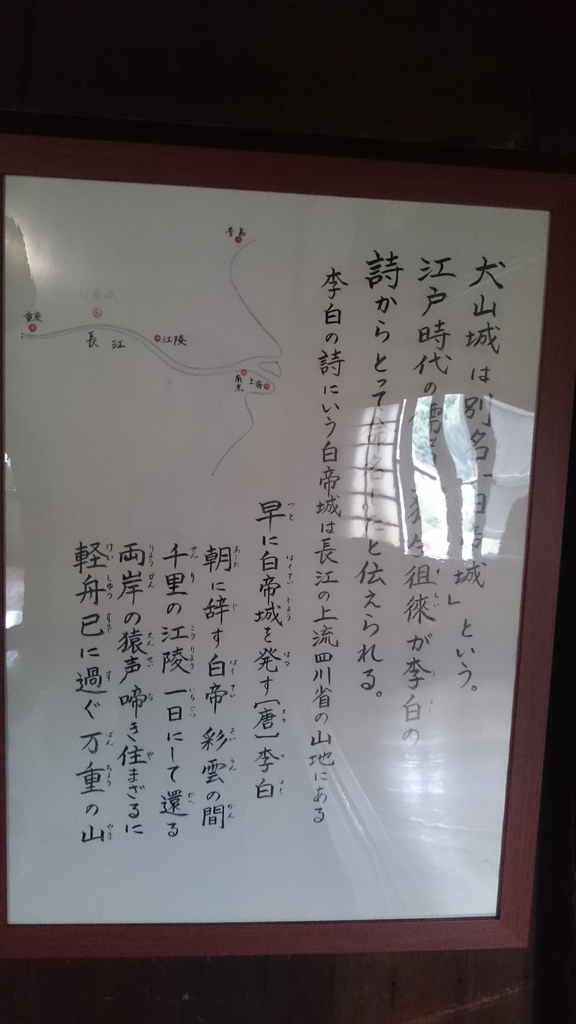 犬山城は別名「白帝城」という。
江戸時代の儒者 荻生徂徠が李白の
詩からとって命名したと伝えられる。
李白の詩にいう白帝城は長江の上流四川省の山地にある
早に白帝城を発す[唐]李白
朝に辞す白帝 彩雲の間
千里の江陵 一日にして還る
両岸の猿声啼き住まざるに
軽舟已に過ぐ万重の山
青島
白帝城
重慶
長江
江陵
南京
上海